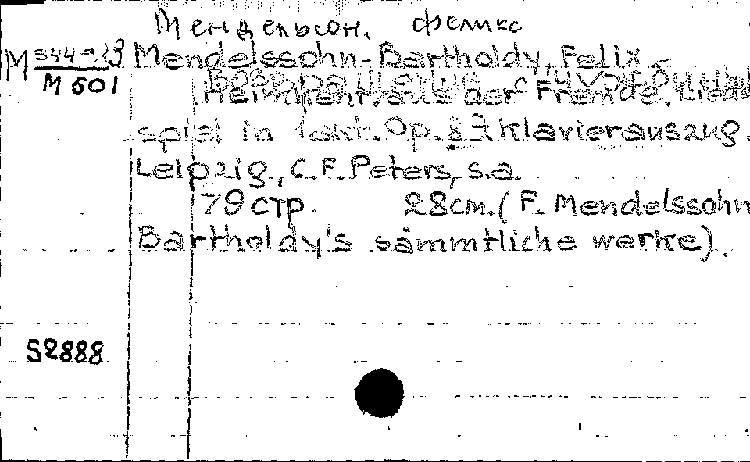 Мендельсон, Феликс
М 544-23 Mendelssohn-Bartholdy, Felix
М 501
Heimkehr aus der Fremde. Lieder-
spiel in 1 akt. Op. 89 Klavierauszug.
Leipzig, C.F. Peters, s.a.
79 стр. 28 см. (F. Mendelssohn
Bartholdy's sämmtliche werke).
52888